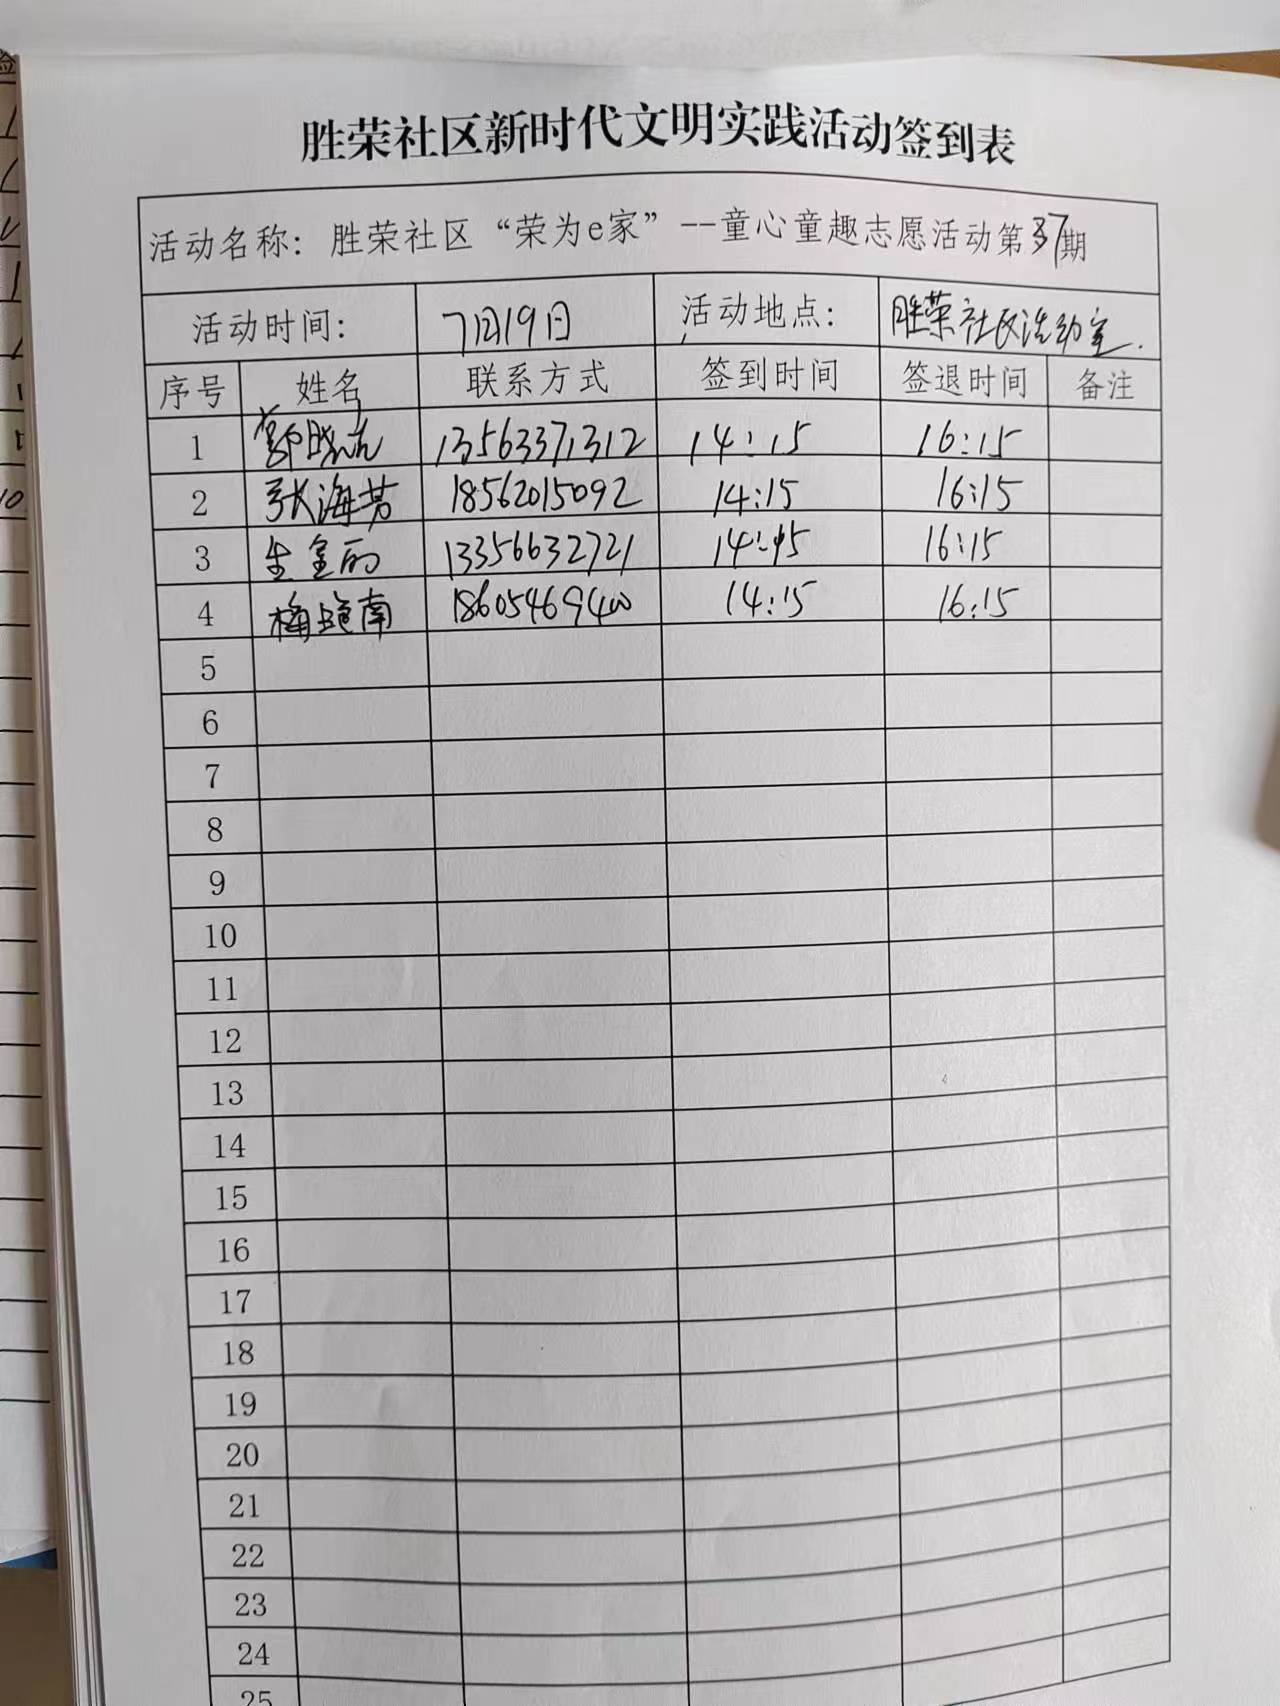 胜荣社区新时代文明实践活动签到表
活动名称：胜荣社区“荣为e家”--童心童趣志愿活动第37期
活动时间： 7月19日 活动地点： 胜荣社区活动室.
序号 姓名 联系方式 签到时间 签退时间 备注
1 13563371312 14:15 16:15
2 张海芳 18562015092 14:15 16:15
3 生金丽 13356632721 14:15 16:15
4 梅艳南 18605469400 14:15 16:15
5
6
7
8
9
10
11
12
13
14
15
16
17
18
19
20
21
22
23
24
25